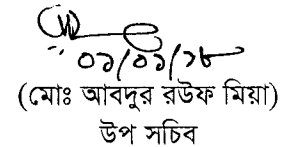 ০১/০১/১৮
(মোঃ আবদুর রউফ মিয়া)
উপ সচিব